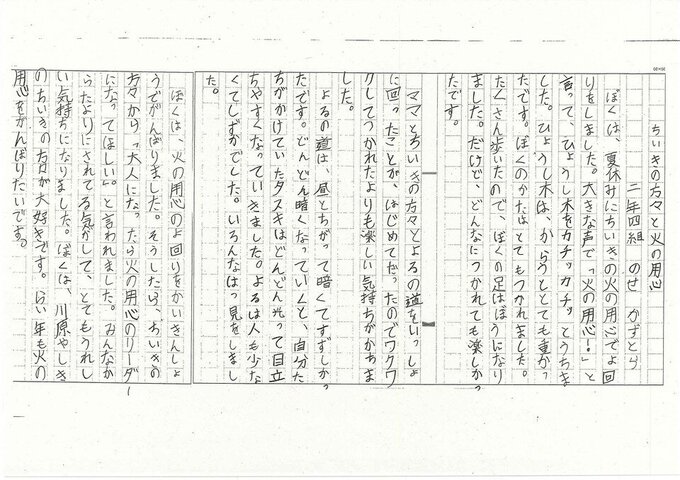 ちいきの方々と火の用心
二年四組 のせ かずとら
ぼくは、夏休みにちいきの火の用心でよ回
りをしました。大きな声で「火の用心！」と
言って、ひょうし木をカチッカチッとうちま
した。ひょうし木は、からうととても重かっ
たです。ぼくのかたはとてもつかれました。
たくさん歩いたので、ぼくの足はぼうになり
ました。だけど、どんなにつかれても楽しかっ
たです。
ママとちいきの方々とよるの道をいっしょ
に回ったことが、はじめてだったのでワクワ
クしてつかれたよりも楽しい気持ちがかちま
した。
よるの道は、昼とちがって暗くてすずしかっ
たです。どんどん暗くなっていくと、自分た
ちがかけていたタスキはどんどん光って目立
ちやすくなっていきました。よるは人も少な
くてしずかでした。いろんなはっ見をしまし
た。
ぼくは、火の用心のよ回りをかいきんしょ
うでがんばりました。そうしたら、ちいきの
方々から、「大人になったら火の用心のリーダー
になってほしい。」と言われました。みんなか
らたよりにされてる気がして、とてもうれし
い気持ちになりました。ぼくは、川原やしき
のちいきの方が大好きです。らい年も火の
用心をがんばりたいです。